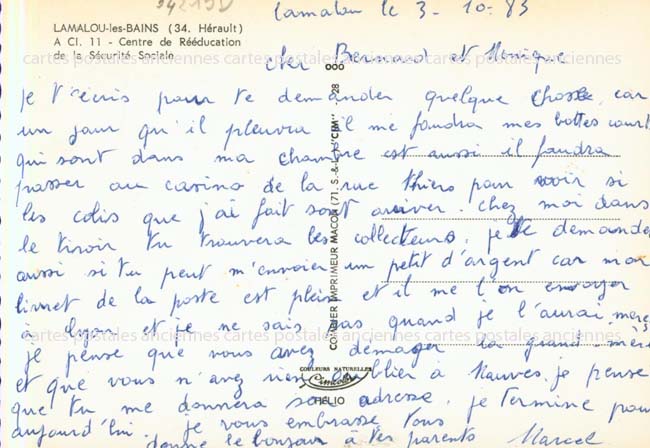 34215D
Lamalou le 3-10-83
LAMALOU-les-BAINS (34. Hérault)
A CI. 11 - Centre de Rééducation
de la Sécurité Sociale
cher Bernard et Monique
je t'écris pour te demander quelque chose, car
un jour qu'il pleuvra il me faudra mes bottes
qui sont dans ma chambre est aussi il faudra
passer au casino de la rue thiers pour voir si
les colis que j'ai fait sont arriver. chez moi dans
le tiroir tu trouvera les collecteurs, je te demande
aussi si tu peut m'envoier un petit d'argent car mon
livret de la poste est plein et il me l'on envoyer
à Lyon et je ne sais pas quand je l'aurai,
je pense que vous avez demager la grand-mère
et que vous n'avez rien oublier à Nauves, je pense
que tu me donnera son adresse, je termine pour
aujourd'hui. je vous embrasse tous
donne le bonjour à tes parents Marcel
COMBIER IMPRIMEUR MACON (71, S.-&-L.) "CIM"
28
COULEURS NATURELLES
Cimcolor
HELIO
cartes postales anciennes cartes postales anciennes cartes postales anciennes
cartes postales anciennes cartes postales anciennes cartes postales anciennes